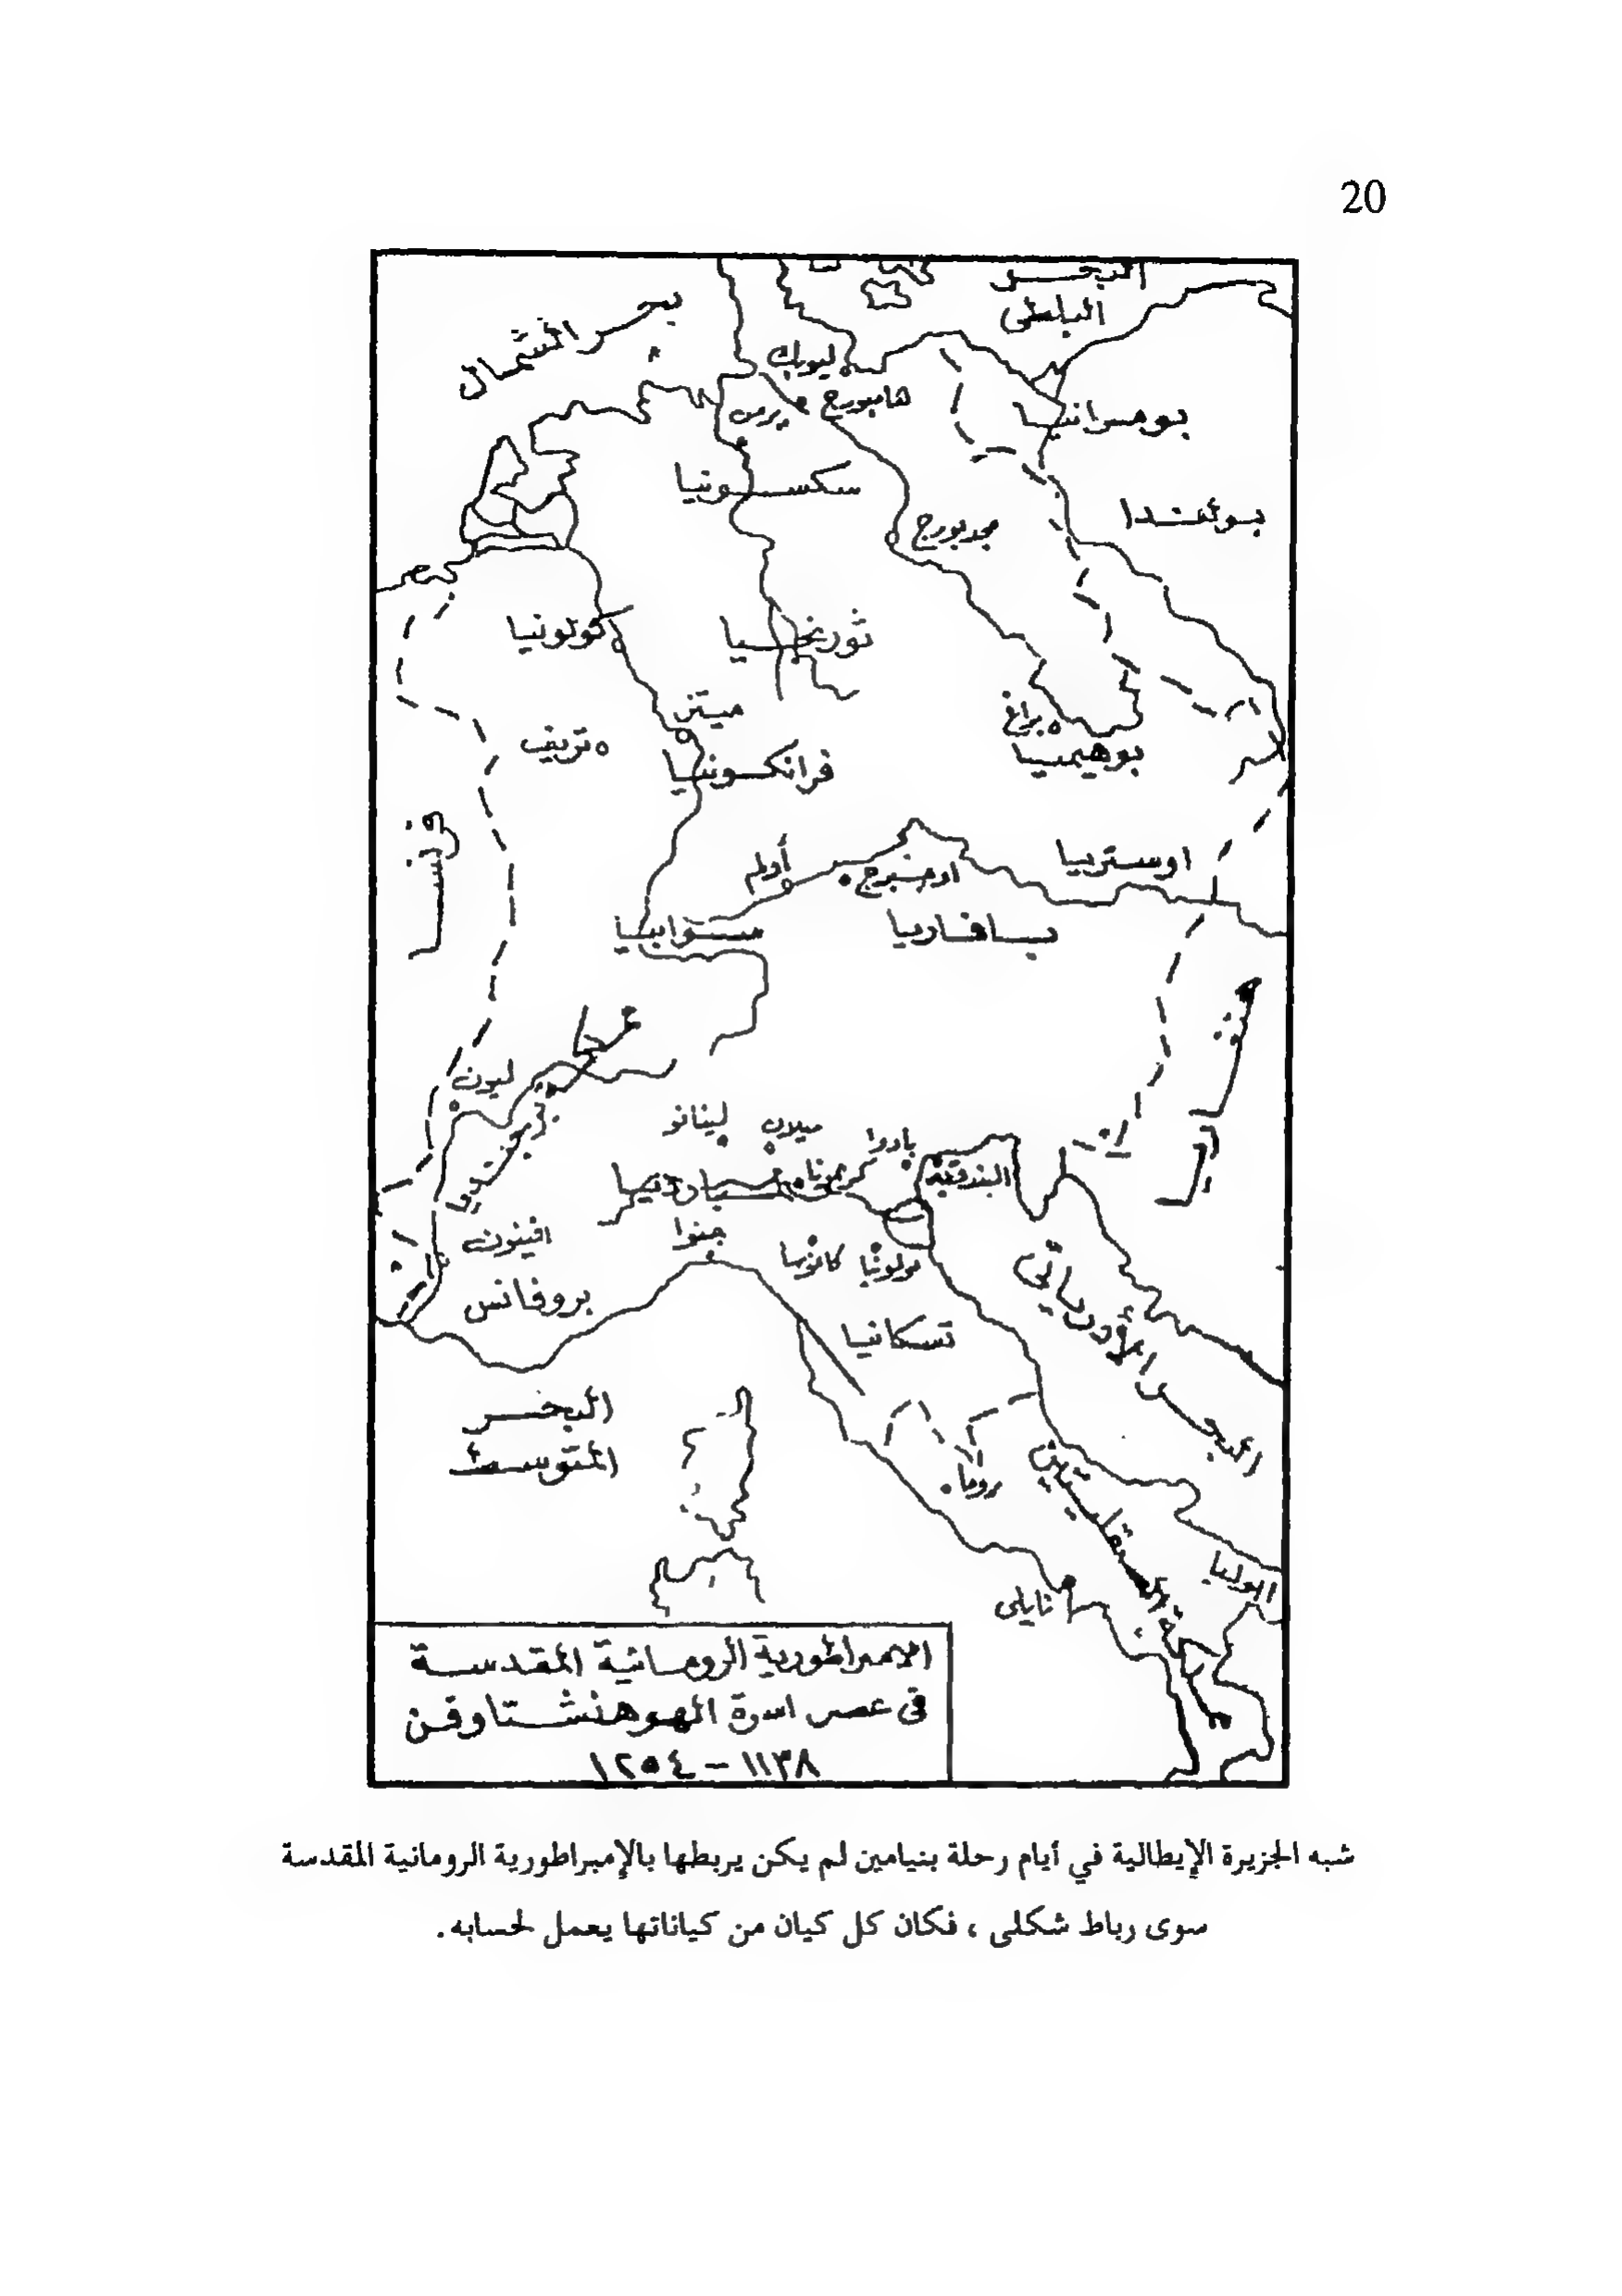 20
البحر
البلطى
بحر الشمال
ليوبك
هامبورج
برمن
بومرانيا
سكسونيا
بولندا
مجدبورج
كولونيا
ثورنجيا
ميتز
براغ
بوهيميا
فرانكونيا
فرنسا
اوستريا
أولم
سوابيا
بافاريا
ليون
لينانو
ميلان
بادوا
كريمونا
البندقية
افينون
جنوا
كانوسا
بولونيا
بروفانس
تسكانيا
البحر الأدرياتى
البحر
المتوسط
روما
نابلى
ابوليا
الامبراطورية الرومانية المقدسة
فى عصر اسرة الهوهنشتاوفن
١١٣٨ – ١٢٥٤
شبه الجزيرة الإيطالية في أيام رحلة بنيامين لم يكن يربطها بالإمبراطورية الرومانية المقدسة
سوى رباط شكلى ، فكان كل كيان من كياناتها يعمل لحسابه .